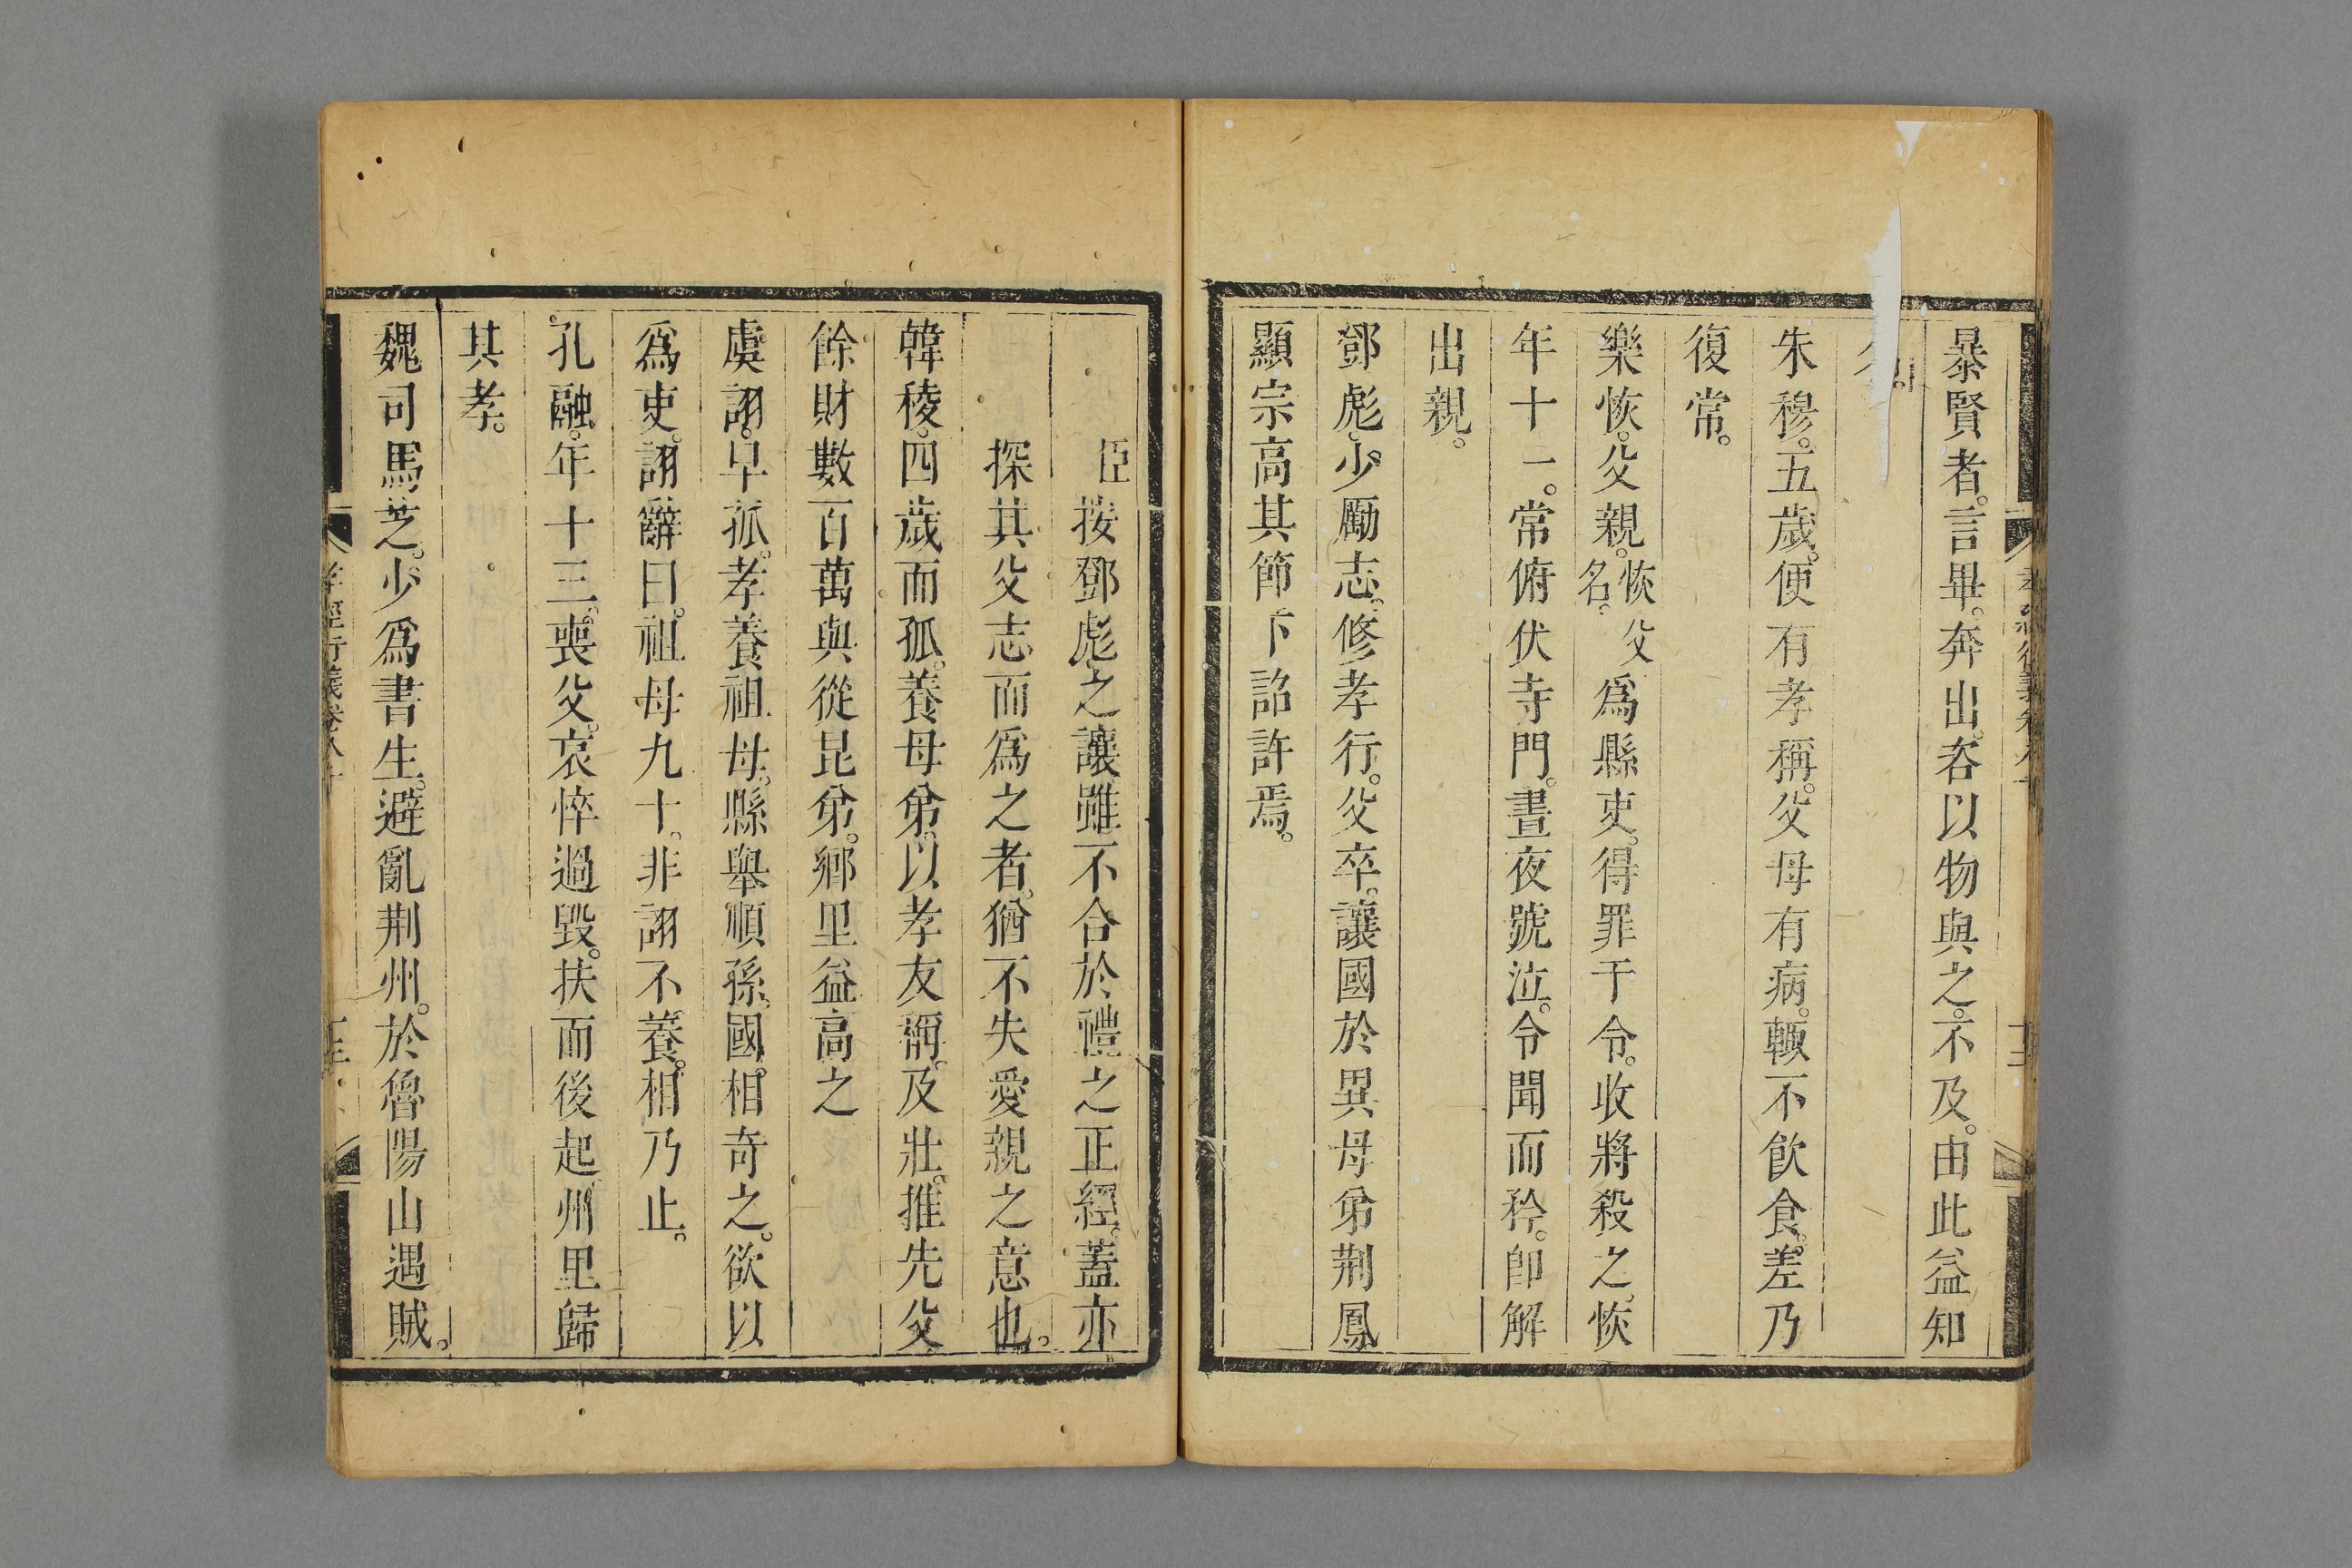 暴賢者。言畢。奔出。咨以物與之。不及。由此益知
名。
朱穆。五歲。便有孝稱。父母有病。輒不飮食。差乃
復常。
樂恢。父親。恢父名。爲縣吏。得罪于令。收將殺之。恢
年十一。常俯伏寺門。晝夜號泣。令聞而矜。卽解
出親。
鄧彪。少勵志。修孝行。父卒。讓國於異母弟荆鳳
顯宗高其節下詔許焉。
臣按鄧彪之讓雖不合於禮之正經。蓋亦
探其父志而爲之者。猶不失愛親之意也。
韓稜。四歲而孤。養母弟。以孝友稱。及壯。推先父
餘財數百萬與從昆弟。鄉里益高之
虞詡。早孤。孝養祖母。縣舉順孫。國相奇之。欲以
爲吏。詡辭曰。祖母九十。非詡不養。相乃止。
孔融。年十三。喪父。哀悴過毀。扶而後起。州里歸
其孝。
魏司馬芝。少爲書生。避亂荆州。於魯陽山遇賊。
孝經衍義卷八十
十三